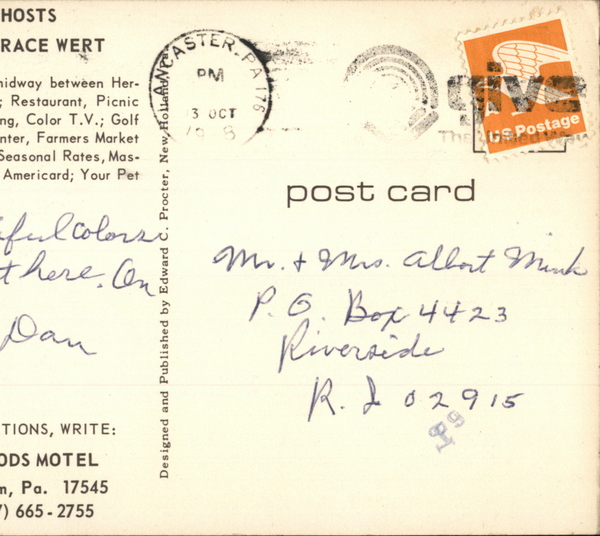 HOSTS
RACE WERT
midway between Her-
; Restaurant, Picnic
ng, Color T.V.; Golf
nter, Farmers Market
Seasonal Rates, Mas-
Americard; Your Pet
iful colors
t here. On
Dan
TIONS, WRITE:
ODS MOTEL
m, Pa. 17545
7) 665-2755
Designed and Published by Edward C. Procter, New Holland,
LANCASTER, PA 176
PM
3 OCT
give
The United Way
A
US Postage
post card
Mr. & Mrs. Albert Mink
P. O. Box 4423
Riverside
R. I 02915